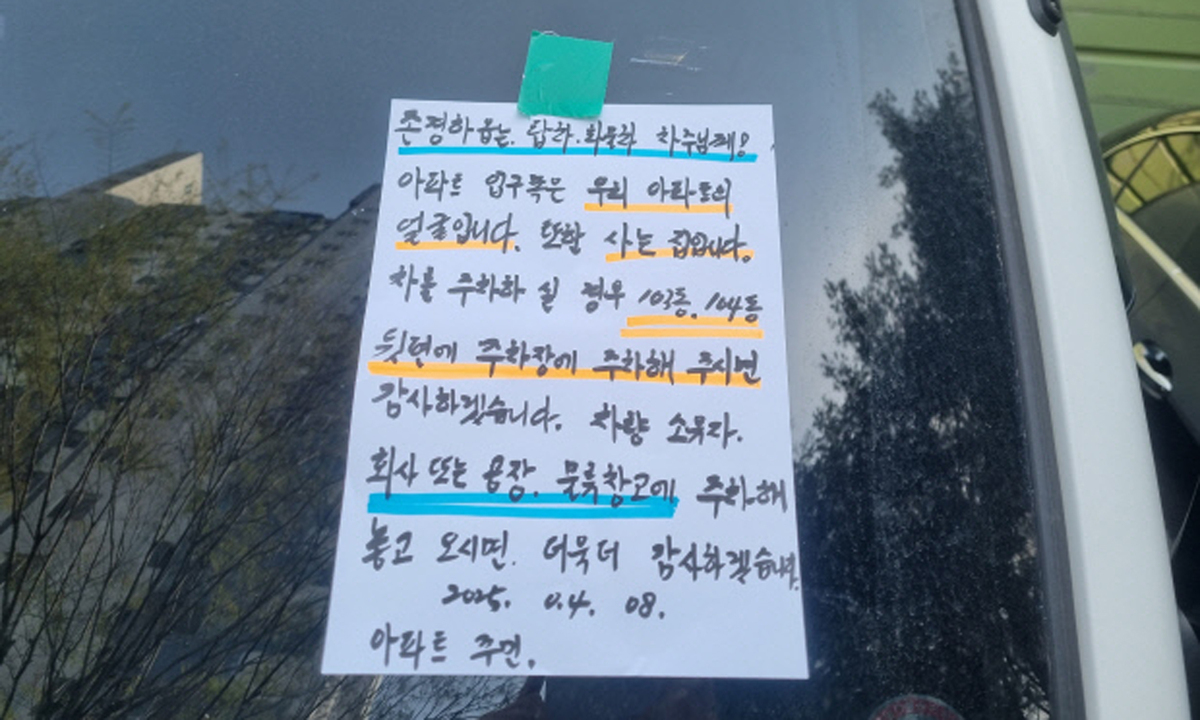 존경하옵는. 탑차.화물차 차주님께!
아파트 입구쪽은 우리 아파트의
얼굴입니다. 또한 사는 집입니다.
차를 주차하 실 경우 103동. 104동
뒷면에 주차장에 주차해 주시면
감사하겠습니다. 차량 소유자.
회사 또는 공장. 물류창고에 주차해
놓고 오시면. 더욱더 감사하겠습니다.
2025. 0.4. 08.
아파트 주민.